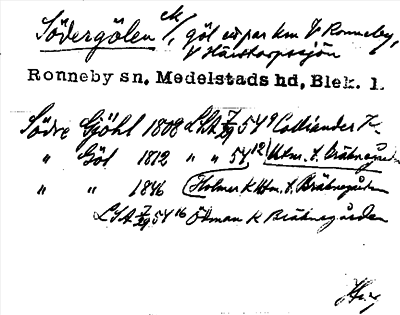 Södergölen ck/, göl ett par km V Ronneby,
V Härstorpssjön
Ronneby sn. Medelstads hd, Blek. l.
Södre Gjöhl 1808 LSA 54 9 Colliander K
" Göl 1812 " " 54 12 Utm. t. Bräknegården
" " 1846 Holmer K Utm. t. Bräknegården
LSA 54 16 Öhman K Bräknegården